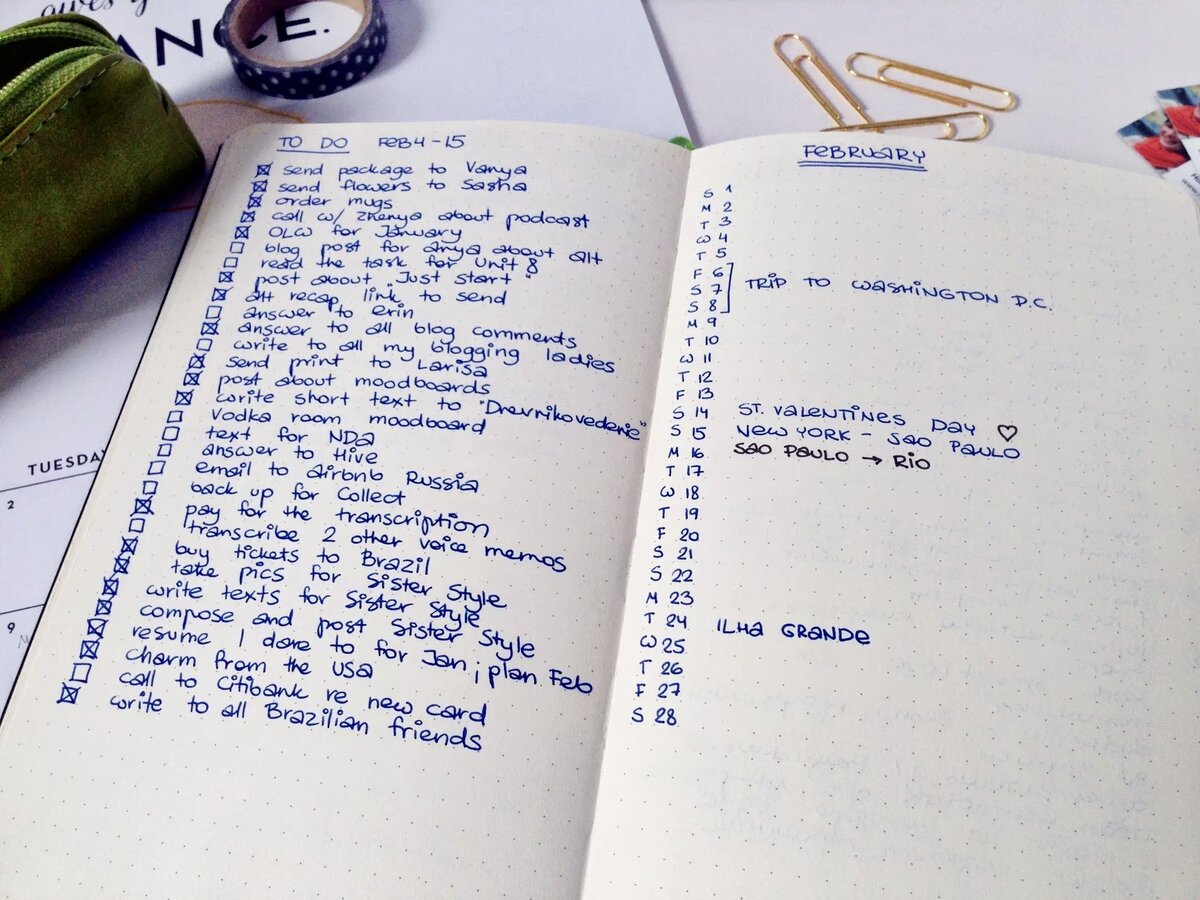 ANCE.
TUESDAY
2
9
TO DO FEB 4-15
☒ send package to Vanya
☒ send flowers to Sasha
☒ order mugs
☒ call w/ Zhenya about podcast
☒ OLW for January
☐ blog post for anya about alt
☐ read the task for Unit 8
☒ post about „Just start"
☒ alt recap link to send
☐ answer to erin
☒ answer to all blog comments
☐ write to all my blogging ladies
☒ send print to Larisa
☒ post about moodboards
☒ write short text to "Drevnikovedenie"
☐ vodka room moodboard
☐ text for NDA
☐ answer to Hive
☐ email to airbnb Russia
☐ back up for Collect
☒ pay for the transcription
☐ transcribe 2 other voice memos
☒ buy tickets to Brazil
☒ take pics for Sister Style
☒ write texts for Sister Style
☒ compose and post Sister Style
☒ resume I dare to for Jan; plan Feb
☒ charm from the USA
☐ call to Citibank re new card
☒ write to all Brazilian friends
FEBRUARY
S 1
M 2
T 3
W 4
T 5
F 6
S 7 TRIP TO WASHINGTON D.C.
S 8
M 9
T 10
W 11
T 12
F 13
S 14 ST. VALENTINES DAY ♡
S 15 NEW YORK - SAO PAULO
M 16 SAO PAULO → RIO
T 17
W 18
T 19
F 20
S 21
S 22
M 23
T 24 ILHA GRANDE
W 25
T 26
F 27
S 28